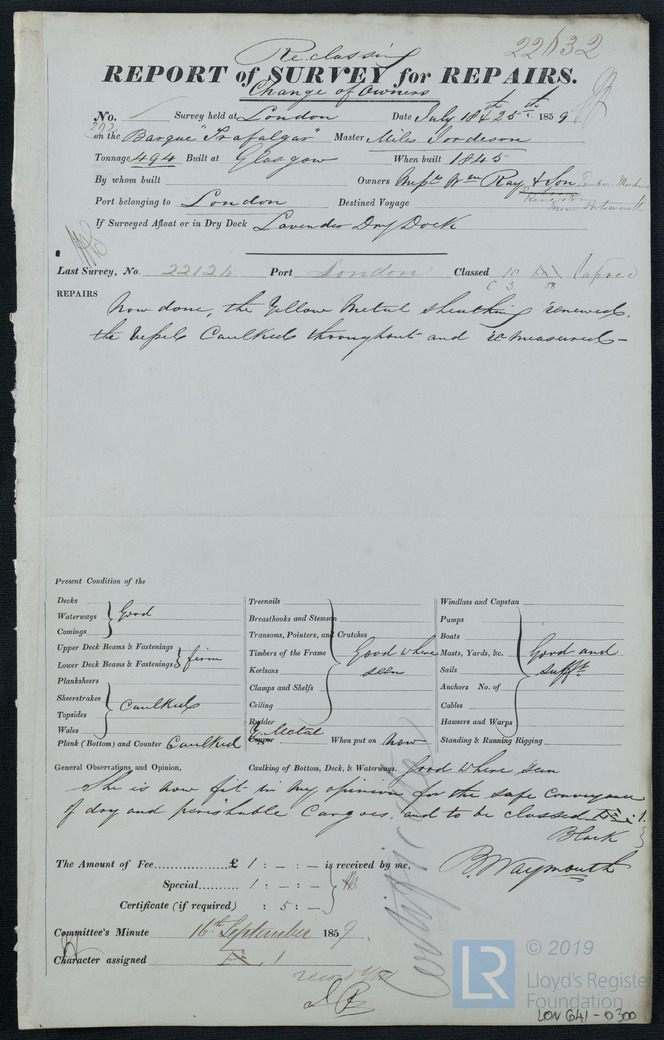 22632
Reclassing
REPORT of SURVEY for REPAIRS.
Change of Owners
No. Survey held at London Date July 18th & 25th 1859
on the Barque "Trafalgar" Master Miles
Tonnage 494 Built at Glasgow When built 1845
By whom built Owners Messrs Wm Ray & Son
Port belonging to London Destined Voyage
If Surveyed Afloat or in Dry Dock Lavender Dry Dock
Last Survey, No. 22126 Port London Classed lapsed
REPAIRS Now done, the Yellow Metal sheathing renewed.
the Vessel Caulked throughout and remeasured –
Present Condition of the
Decks
Waterways
Comings
Good
Upper Deck Beams & Fastenings
Lower Deck Beams & Fastenings
firm
Planksheers
Sheerstrakes
Topsides
Wales
Caulked
Plank (Bottom) and Counter Caulked
Treenails
Breasthooks and Stemson
Transoms, Pointers, and Crutches
Timbers of the Frame
Keelsons
Clamps and Shelfs
Ceiling
Rudder
Good where
seen
Y. Metal
Copper When put on now
Windlass and Capstan
Pumps
Boats
Masts, Yards, &c.
Sails
Anchors No. of
Cables
Hawsers and Warps
Good and
sufft.
Standing & Running Rigging
General Observations and Opinion, Caulking of Bottom, Deck, & Waterways. Good where seen
She is now fit in my opinion for the safe conveyance
of dry and perishable Cargoes. and to be classed Æ. 1.
Black
The Amount of Fee £ 1 : – : – is received by me,
B. Waymouth
Special 1 : – : –
Certificate (if required) : 5 : –
Committee's Minute 16th September 1859
Character assigned Æ 1
Certificate
© 2019
LR
Lloyd's Register
Foundation
LON 641-0300